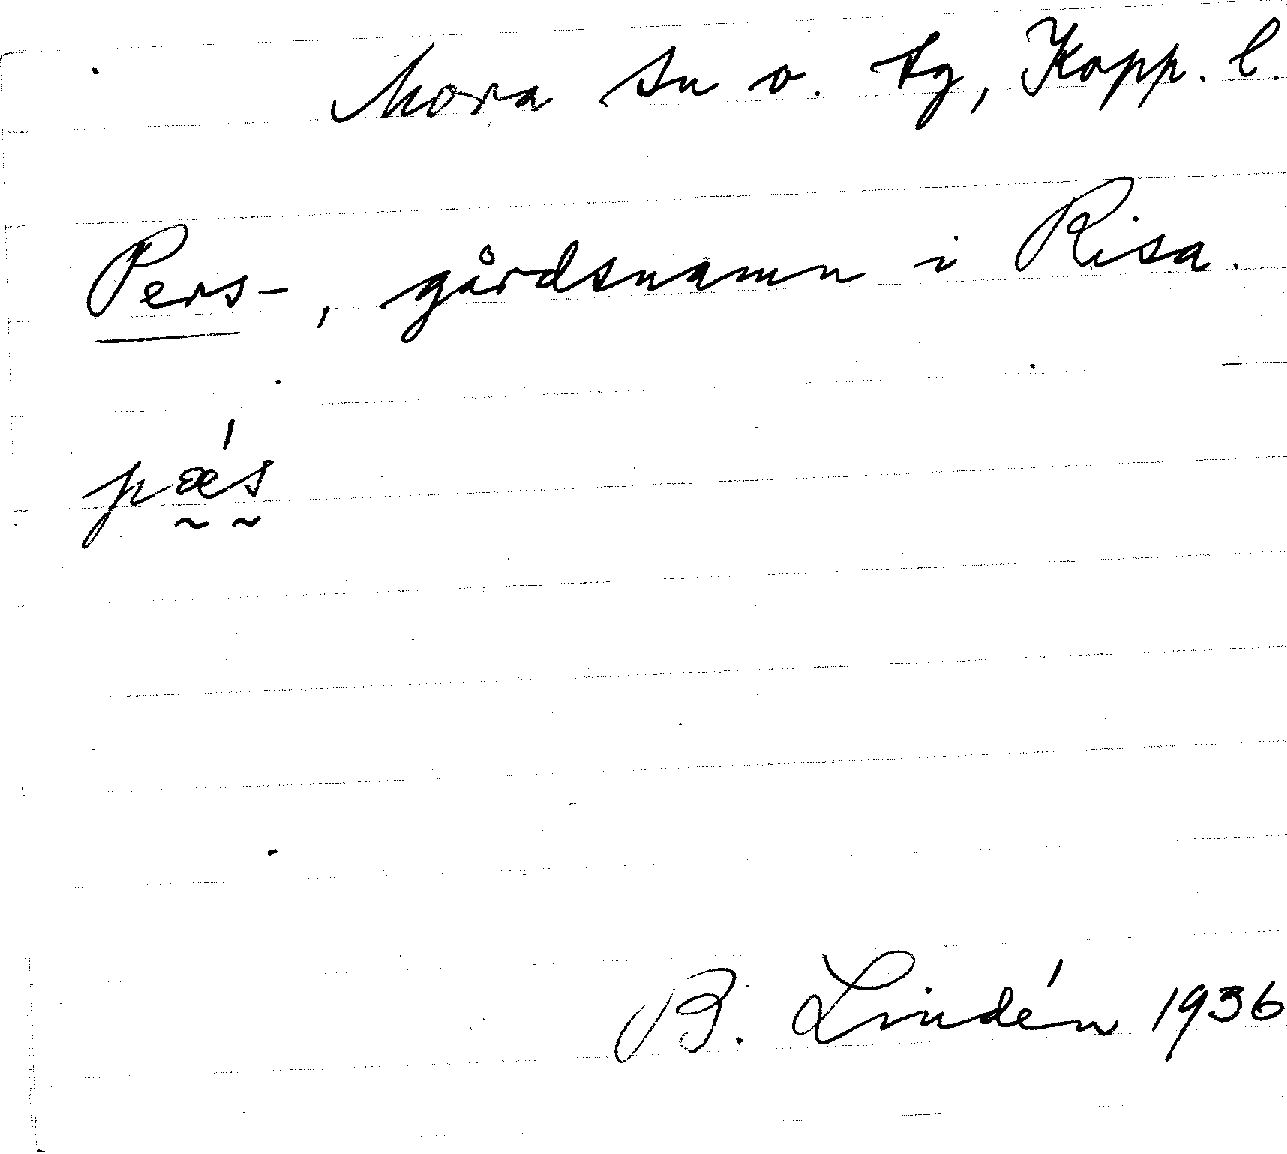 Mora sn o. tg, Kopp. l.
Pers-, gårdsnamn i Risa.
pǽ̰s̰
B. Lindén 1936